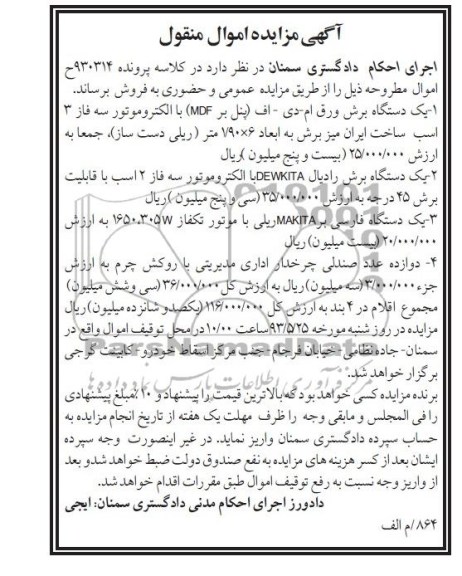 آگهی مزایده اموال منقول
اجرای احکام دادگستری سمنان در نظر دارد در کلاسه پرونده ۹۳۰۳۱۴ح
اموال مطروحه ذیل را از طریق مزایده عمومی و حضوری به فروش برساند.
۱-یک دستگاه برش ورق ام-دی - اف (پنل بر MDF) با الکتروموتور سه فاز ۳
اسب ساخت ایران میز برش به ابعاد ۶×۱/۹۰ متر (ریلی دست ساز)، جمعا به
ارزش ۲۵/۰۰۰/۰۰۰ (بیست و پنج میلیون )ریال
۲-یک دستگاه برش رادیال DEWKITAبا الکتروموتور سه فاز ۲ اسب با قابلیت
برش ۴۵ درجه به ارزش ۳۵/۰۰۰/۰۰۰ (سی و پنج میلیون )ریال
۳-یک دستگاه فارسی برMAKITAریلی با موتور تکفاز ۱۶۵۰.۳۰۵W به ارزش
۲۰/۰۰۰/۰۰۰ (بیست میلیون) ریال
۴- دوازده عدد صندلی چرخدار اداری مدیریتی با روکش چرم به ارزش
جزء۳/۰۰۰/۰۰۰(سه میلیون) ریال به ارزش کل ۳۶/۰۰۰/۰۰۰ (سی وشش میلیون)
مجموع اقلام در ۴ بند به ارزش کل ۱۱۶/۰۰۰/۰۰۰ (یکصدو شانزده میلیون) ریال
مزایده در روز شنبه مورخه ۹۳/۵/۲۵ساعت ۱۰/۰۰در محل توقیف اموال واقع در
سمنان- جاده نظامی- خیابان فرجام- جنب مرکز اسقاط خودرو- کابینت گرجی
برگزار خواهد شد.
برنده مزایده کسی خواهد بود که بالاترین قیمت را پیشنهاد و ۱۰٪ مبلغ پیشنهادی
را فی المجلس و مابقی وجه را ظرف مهلت یک هفته از تاریخ انجام مزایده به
حساب سپرده دادگستری سمنان واریز نماید. در غیر اینصورت وجه سپرده
ایشان بعد از کسر هزینه های مزایده به نفع صندوق دولت ضبط خواهد شدو بعد
از واریز وجه نسبت به رفع توقیف اموال طبق مقررات اقدام خواهد شد.
دادورز اجرای احکام مدنی دادگستری سمنان: ایجی
۸۶۴/م الف
ParsNamadData
مرکز فرآوری اطلاعات پارس نماد داده ها